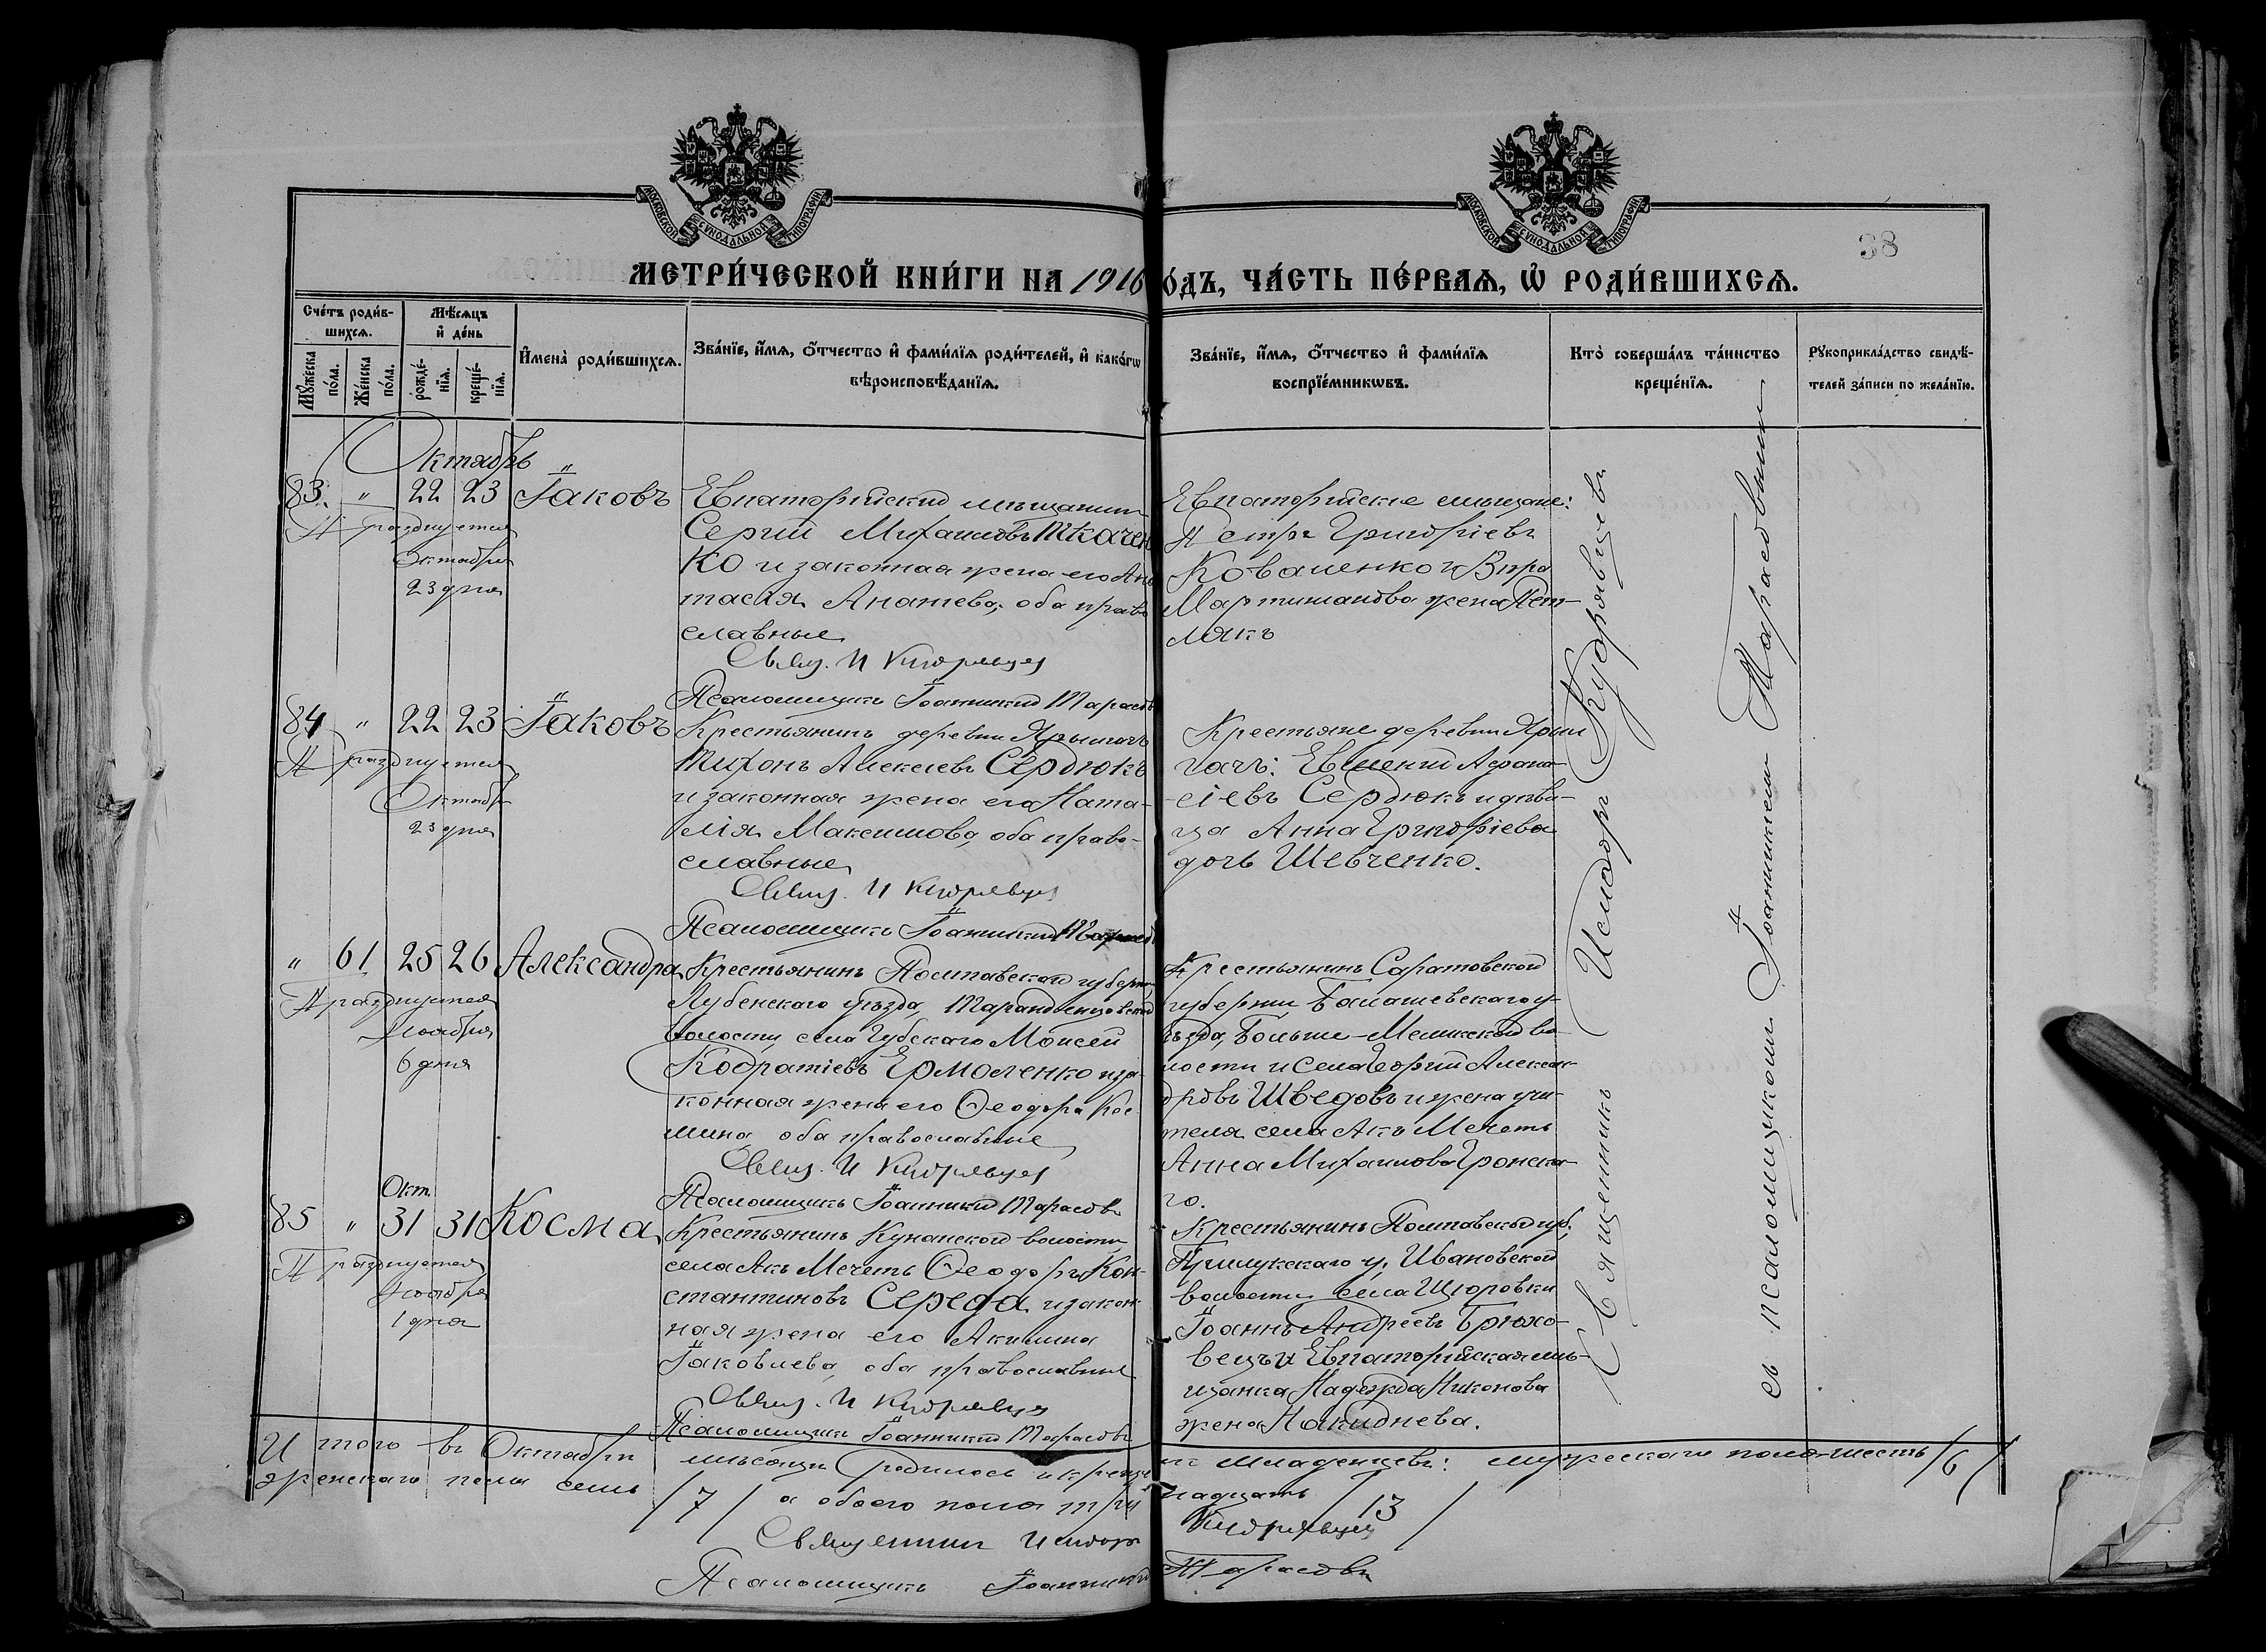 МОСКОВСКОЙ СѴНОДАЛЬНОЙ ТИПОГРАФІИ
МОСКОВСКОЙ СѴНОДАЛЬНОЙ ТИПОГРАФІИ
38
МЕТРИ́ЧЕСКОЙ КНИ́ГИ НА 1916
ОДЪ, ЧА́СТЬ ПЕ́РВАѦ, Ѡ҆ РОДИ́ВШИХСѦ.
Сче́тъ роди́в-
шихсѧ.
Мѣ́сѧцъ
и҆ де́нь
Мꙋ́жеска
по́ла.
Же́нска
по́ла.
рожде́-
нїѧ.
креще́-
нїѧ.
И҆мена̀ роди́вшихсѧ.
Зва́нїе, и҆́мѧ, ѻ҆́тчество и҆ фами́лїѧ роди́телей, и҆ како́гѡ
вѣроисповѣ́данїѧ.
Зва́нїе, и҆́мѧ, ѻ҆́тчество и҆ фами́лїѧ
воспрїе́мникѡвъ.
Кто̀ соверша́лъ та́инство
креще́нїѧ.
Рꙋкоприкла́дство свидѣ́-
телей за́писи по жела́нїю.
Октябрь
83. " 22 23 Іаковъ
Празднуется
Октября
23 дня
Евпаторійскій мѣщанинъ
Сергій Михаиловъ Ткачен
ко и законная жена его Ана
тасія Ананіева, оба право
славные
Свящ. И Кудрявцев
Псаломщикъ Іоанникій Тарасовъ
Евпаторійскіе мѣщане:
Петръ Григоріевъ
Коваленко и Вѣра
Мартиніанова жена Пет-
лякъ
84 " 22 23 Іаковъ
Празднуется
Октября
23 дня
Крестьянинъ деревни Ярылгачъ
Тихонъ Алексіевъ Сердюкъ
и законная жена его Ната-
лія Максимова, оба право-
славные
Свящ. И Кудрявцев
Псаломщикъ Іоанникій Тарасовъ
Крестьяне деревни Ярыл
гачъ: Евгеній Афана-
сіевъ Сердюкъ и дѣви-
ца Анна Григоріева
дочь Шевченко.
" 61 25 26 Александра
Празднуется
Ноября
6 дня
Крестьянинъ Полтавской губерніи
Лубенскаго уѣзда, Тарандинцовской
волости, села Губскаго Моисей
Кодратіевъ Ермоленко и за-
конная жена его Ѳеодора Кос
мина, оба православные
Свящ. И Кудрявцев
Псаломщикъ Іоанникій Тарасовъ
Крестьянинъ Саратовской
губерніи Балашевскаго у-
ѣзда, Больше-Меликской во-
лости и села Георгій Алексан
дровъ Шведовъ и жена учи-
теля села Акъ Мечеть
Анна Михаилова Гронска-
го.
Окт.
85 " 31 31 Косма
Празднуется
Ноября
1 дня
Крестьянинъ Кунанской волости
села Акъ Мечеть Ѳеодоръ Кон-
стантиновъ Середа и закон-
ная жена его Акилина
Іаковлева, оба православные
Свящ. И Кудрявцев
Псаломщикъ Іоанникій Тарасовъ
Крестьянинъ Полтавской губ.
Прилукскаго у. Ивановской
волости села Щуровки
Іоаннъ Андреевъ Брюхо-
вецъ и Евпаторійская мѣ-
щанка Надежда Никонова
жена Накиднева.
Священникъ Исидоръ Кудрявцевъ
съ псаломщикомъ Іоанникіемъ Тарасовымъ
Итого въ Октябрѣ мѣсяцѣ родилось и креще
но младенцевъ: мужескаго пола-шесть /6/
женскаго пола семь /7/ а обоего пола три
надцать /13/
Священник Исидоръ Кудрявцев
Псаломщикъ Іоанникій Тарасовъ